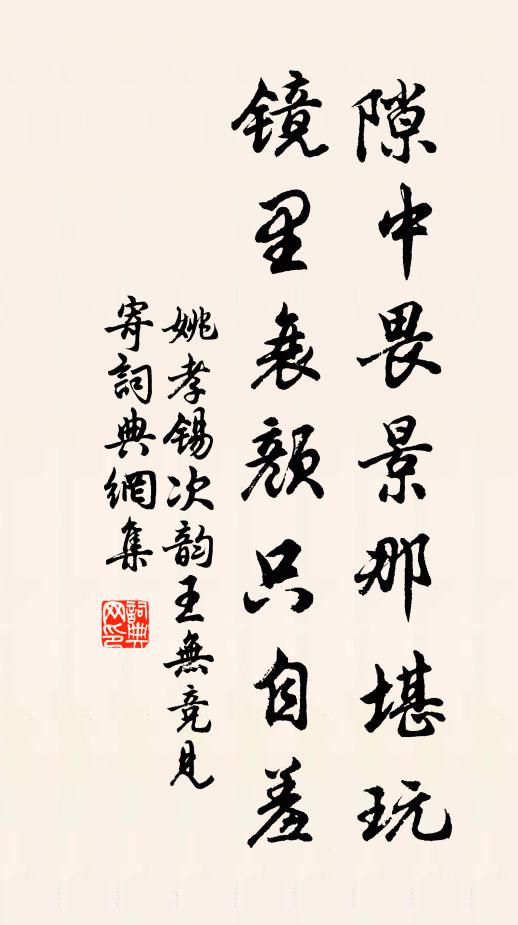 隙中畏景那堪玩
镜里衰颜只自羞
姚孝锡次韵王無竞见
寄詞典網集
詞典网印